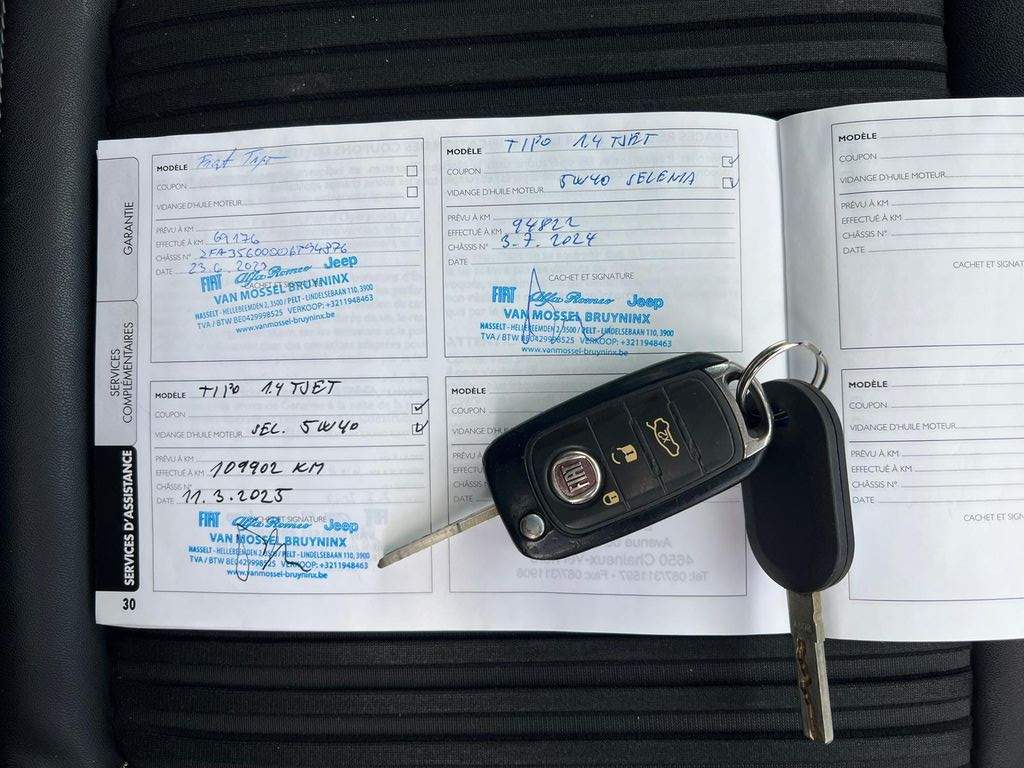 GARANTIE
SERVICES
COMPLÉMENTAIRES
SERVICES D'ASSISTANCE
30
MODÈLE Fiat Tipo
COUPON
VIDANGE D'HUILE MOTEUR
PRÉVU À KM
EFFECTUÉ À KM 69176
CHÂSSIS N°
DATE 23.6.2023
CACHET ET SIGNATURE
FIAT Alfa Romeo Jeep
VAN MOSSEL BRUYNINX
HASSELT - HELLEBEEMDEN 2, 3500 / PELT - LINDELSEBAAN 110, 3900
TVA / BTW BE0429998525 VERKOOP: +3211948463
www.vanmossel-bruyninx.be
MODÈLE TIPO 1.4 TJET
COUPON
VIDANGE D'HUILE MOTEUR 5W40 SELENIA
PRÉVU À KM
EFFECTUÉ À KM 94822
CHÂSSIS N° 3-7. 2024
DATE
CACHET ET SIGNATURE
FIAT Alfa Romeo Jeep
VAN MOSSEL BRUYNINX
HASSELT - HELLEBEEMDEN 2, 3500 / PELT - LINDELSEBAAN 110, 3900
TVA / BTW BE0429998525 VERKOOP: +3211948463
www.vanmossel-bruyninx.be
MODÈLE TIPO 1.4 TJET
COUPON
VIDANGE D'HUILE MOTEUR SEL. 5W40
PRÉVU À KM
EFFECTUÉ À KM 109902 KM
CHÂSSIS N°
DATE 11.3.2025
CACHET ET SIGNATURE
FIAT Alfa Romeo Jeep
VAN MOSSEL BRUYNINX
HASSELT - HELLEBEEMDEN 2, 3500 / PELT - LINDELSEBAAN 110, 3900
TVA / BTW BE0429998525 VERKOOP: +3211948463
www.vanmossel-bruyninx.be
MODÈLE
COUPON
VIDANGE D'HU
PRÉVU À KM
EFFECTUÉ À
CHÂSSIS N
DATE
FIAT
X2
MODÈLE
COUPON
VIDANGE D'HUILE MOTEUR
PRÉVU À KM
EFFECTUÉ À KM
CHÂSSIS N°
DATE
CACHET ET SIGNAT
MODÈLE
COUPON
VIDANGE D'HUILE MOTEUR
PRÉVU À KM
EFFECTUÉ À KM
CHÂSSIS N°
DATE
CACHET ET SIGN